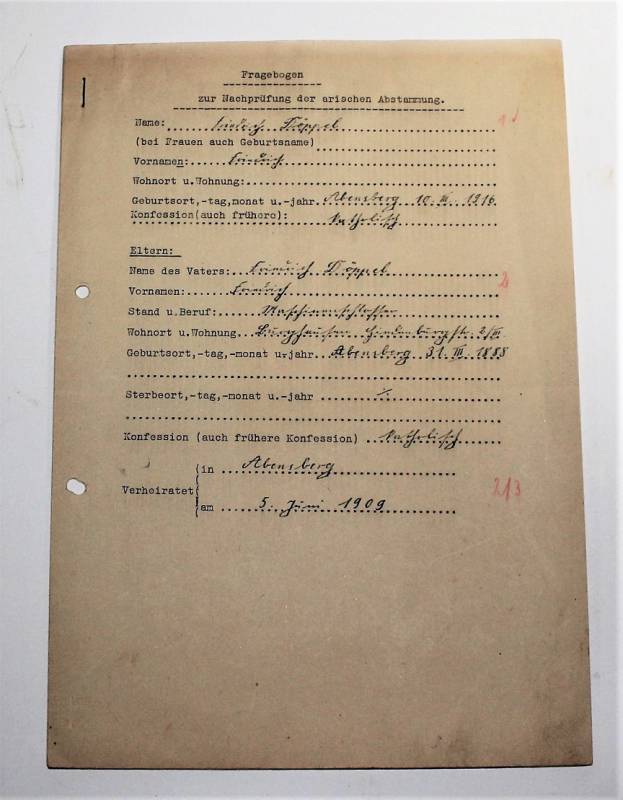 Fragebogen
zur Nachprüfung der arischen Abstammung.
Name: Friedrich Döppel 1
(bei Frauen auch Geburtsname)
Vornamen: Friedrich
Wohnort u.Wohnung:
Geburtsort,-tag,monat u.-jahr. Abensberg 10. III. 1916.
Konfession(auch frühere): katholisch
Eltern:
Name des Vaters: Friedrich Döppel 2
Vornamen: Friedrich
Stand u.Beruf: Maschinenschlosser
Wohnort u.Wohnung Burghausen Hindenburgstr. 2/III
Geburtsort,-tag,-monat u.-jahr. Abensberg 31. III. 1888
Sterbeort,-tag,-monat u.-jahr ./.
Konfession (auch frühere Konfession) katholisch
Verheiratet
in Abensberg
am 5. Juni 1909
2/3